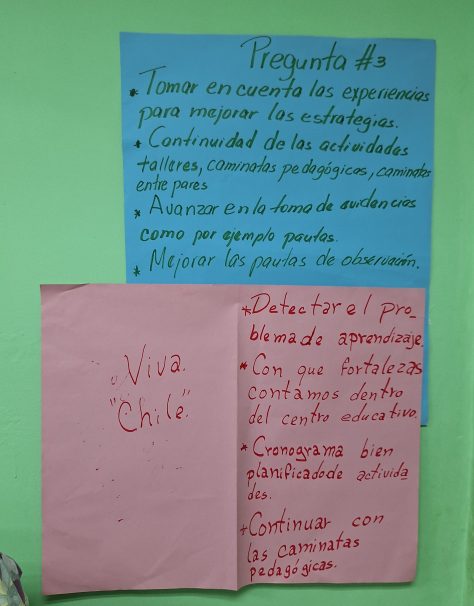 Pregunta #3
* Tomar en cuenta las experiencias
para mejorar las estrategias.
* Continuidad de las actividades
talleres, caminatas pedagógicas, caminatas
entre pares
* Avanzar en la toma de evidencias
como por ejemplo pautas.
* Mejorar las pautas de observación.
Viva.
"Chile".
* Detectar el pro-
blema de aprendizaje.
* Con que fortalezas
contamos dentro
del centro educativo.
* Cronograma bien
planificado de activida
des.
+ Continuar con
las caminatas
pedagógicas.